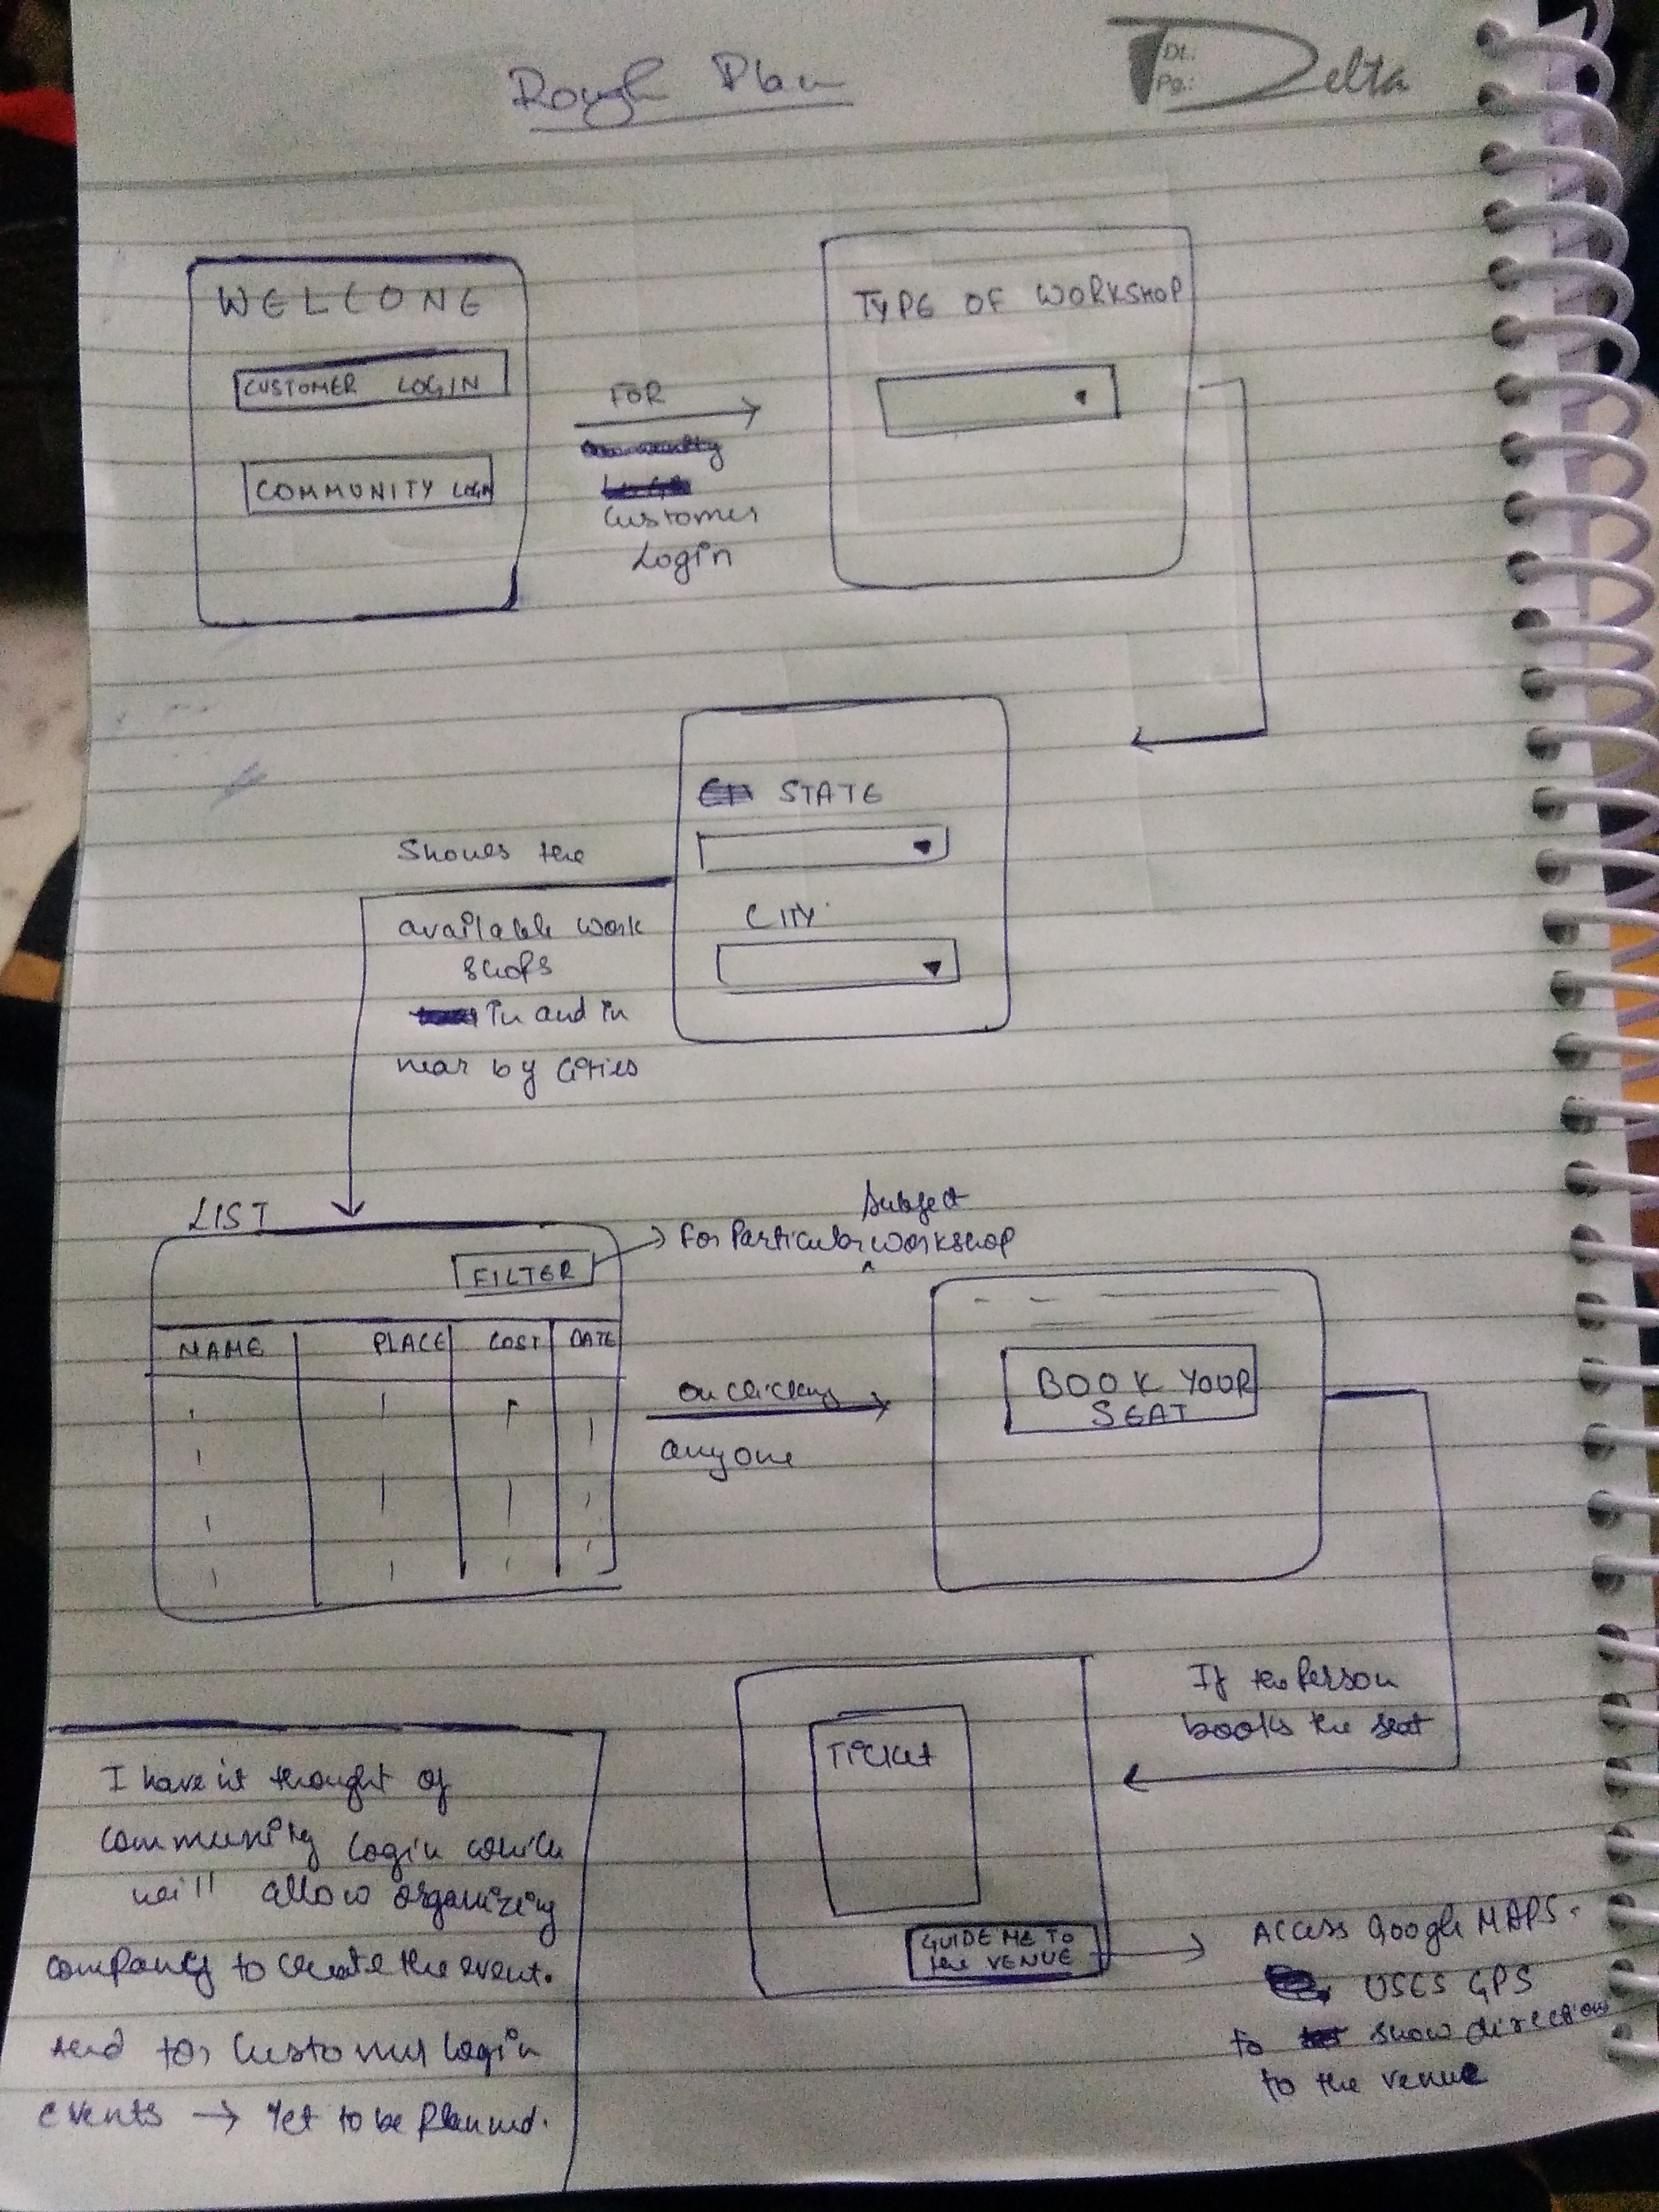 Rough Plan
Dt.:
Pg.:
Delta
WELCOME
CUSTOMER LOGIN
COMMUNITY LOGIN
FOR
Customer
Login
TYPE OF WORKSHOP
STATE
CITY
Shows the
available work
shops
in and in
near by Cities
LIST
FILTER
For Particular Subject workshop
NAME PLACE COST DATE
on clicking
anyone
BOOK YOUR
SEAT
If the Person
books the seat
TICKET
GUIDE ME TO
the VENUE
Access Google MAPS.
USES GPS
to show directions
to the venue
I haven't thought of
community Login which
will allow organizing
company to create the event.
And for Customer Login
events → Yet to be Planned.